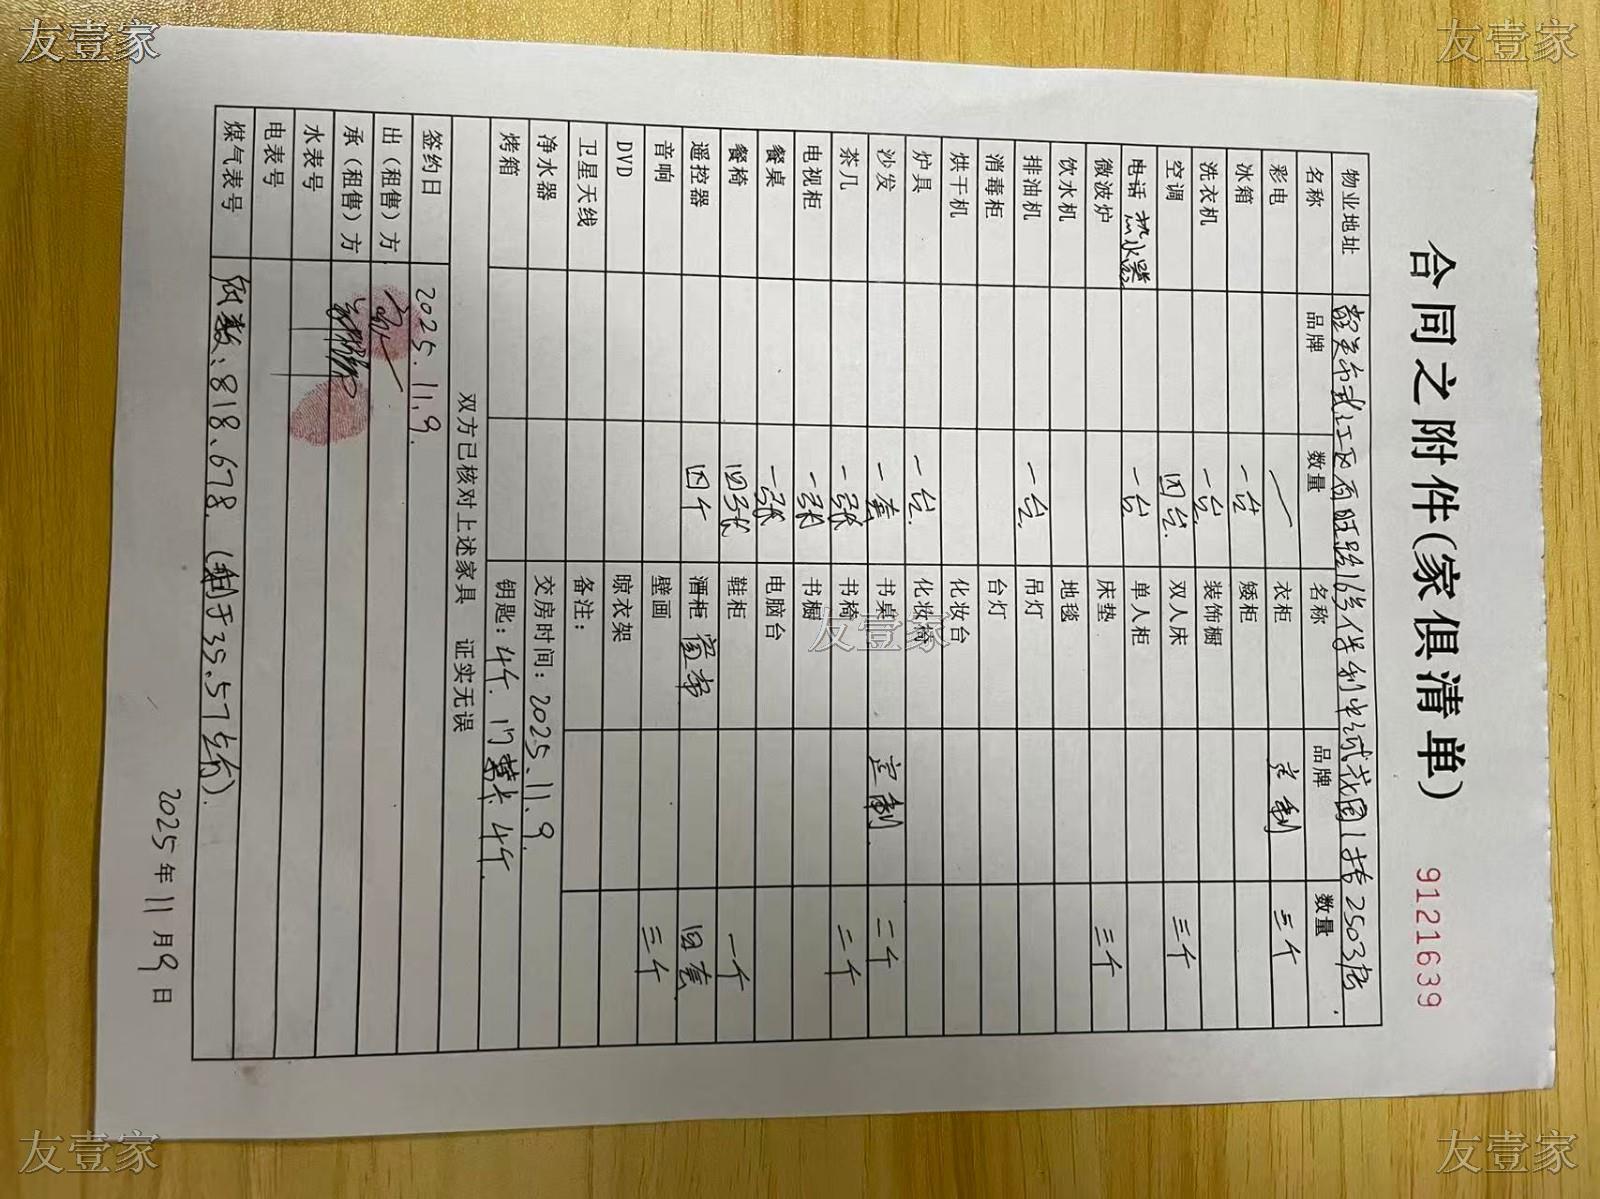 友壹家
友壹家
合同之附件(家俱清单)
9121639
物业地址 韶关市武江区百旺路16号保利中诚花园1栋2503房.
名称 品牌 数量 名称 品牌 数量
彩电 衣柜 定制 三个
冰箱 一台 矮柜
洗衣机 一台. 装饰橱
空调 四台. 双人床 三个
电话 热水器 一台 单人柜
微波炉 床垫 三个
饮水机 地毯
排油机 一台. 吊灯
消毒柜 台灯
烘干机 化妆台
炉具 一台. 化妆椅
沙发 一套 书桌 定制. 二个
茶几 一张 书椅 二个
电视柜 一张 书橱
餐桌 一张 电脑台
餐椅 四张 鞋柜 一个
遥控器 四个 酒柜 窗帘 四套
音响 壁画 三个
DVD 晾衣架
卫星天线 备注:
净水器 交房时间: 2025.11.9.
烤箱 钥匙: 4个. 门禁卡 4个.
双方已核对上述家具 证实无误
签约日 2025.11.9.
出(租售)方
承(租售)方
水表号
电表号
煤气表号 底数: 818.678. (剩于35.57左右).
2025年11月9日
友壹家
友壹家
友壹家